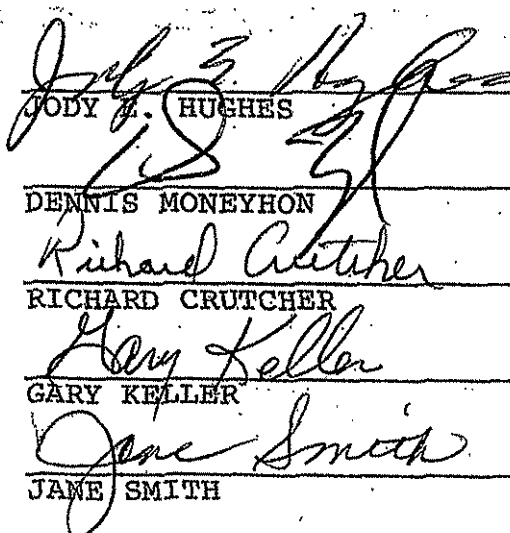 Jody E. Hughes
JODY E. HUGHES
DENNIS MONEYHON
Richard Crutcher
RICHARD CRUTCHER
Gary Keller
GARY KELLER
Jane Smith
JANE SMITH